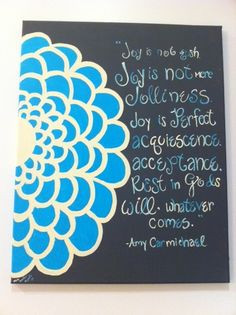 "Joy is not gush.
Joy is not mere
Jolliness.
Joy is Perfect
acquiescence.
acceptance.
Rest in God's
will. whatever
comes."
-Amy Carmichael